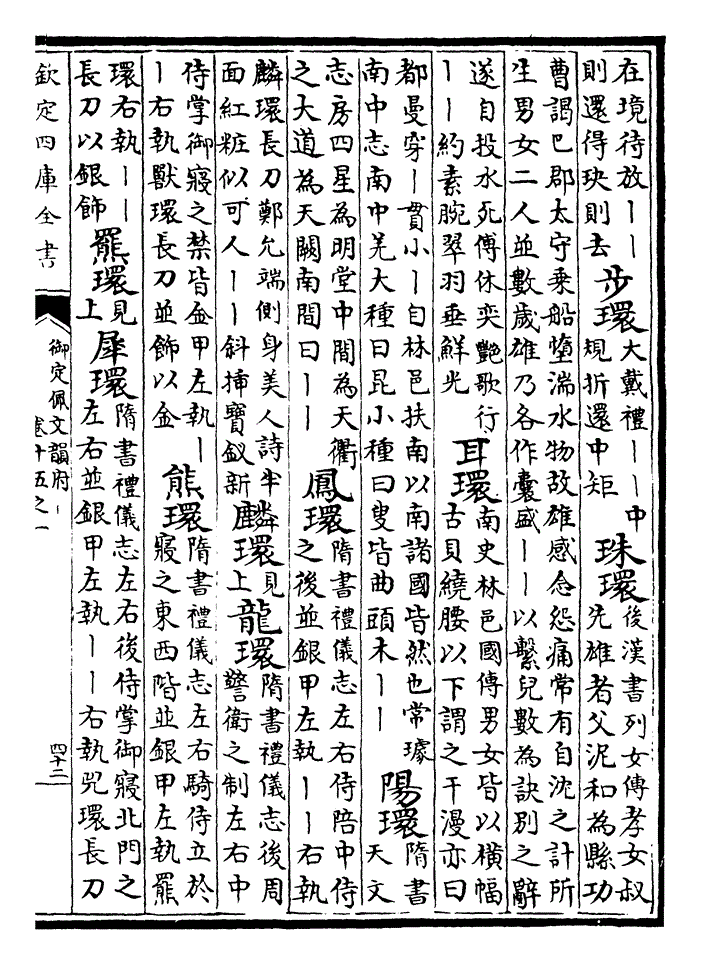 在境待放丨丨則還得玦則去 步環 大戴禮丨丨中規折還中矩 珠環 後漢書列女傳孝女叔先雄者父泥和為縣功
曹謁巴郡太守乘船墮湍水物故雄感念怨痛常有自沈之計所
生男女二人並數歲雄乃各作囊盛丨丨以繫兒數為訣別之辭
遂自投水死傅休奕艷歌行丨丨約素腕翠羽垂鮮光 耳環 南史林邑國傳男女皆以橫幅古貝繞腰以下謂之干漫亦曰
都曼穿丨貫小丨自林邑扶南以南諸國皆然也常璩南中志南中羌大種曰昆小種曰叟皆曲頭木丨丨 陽環 隋書天文
志房四星為明堂中間為天衢之大道為天闕南間曰丨丨 鳳環 隋書禮儀志左右侍陪中侍之後並銀甲左執丨丨右執
麟環長刀鄭允端側身美人詩半面紅粧似可人丨丨斜揷寶釵新 麟環 見上 龍環 隋書禮儀志後周警衛之制左右中
侍掌御寢之禁皆金甲左執丨丨右執獸環長刀並飾以金 熊環 隋書禮儀志左右騎侍立於寢之東西階並銀甲左執羆
環右執丨丨長刀以銀飾 羆環 見上 犀環 隋書禮儀志左右後侍掌御寢北門之左右並銀甲左執丨丨右執兕環長刀
欽定四庫全書
御定佩文韻府
卷十五之一
四十二